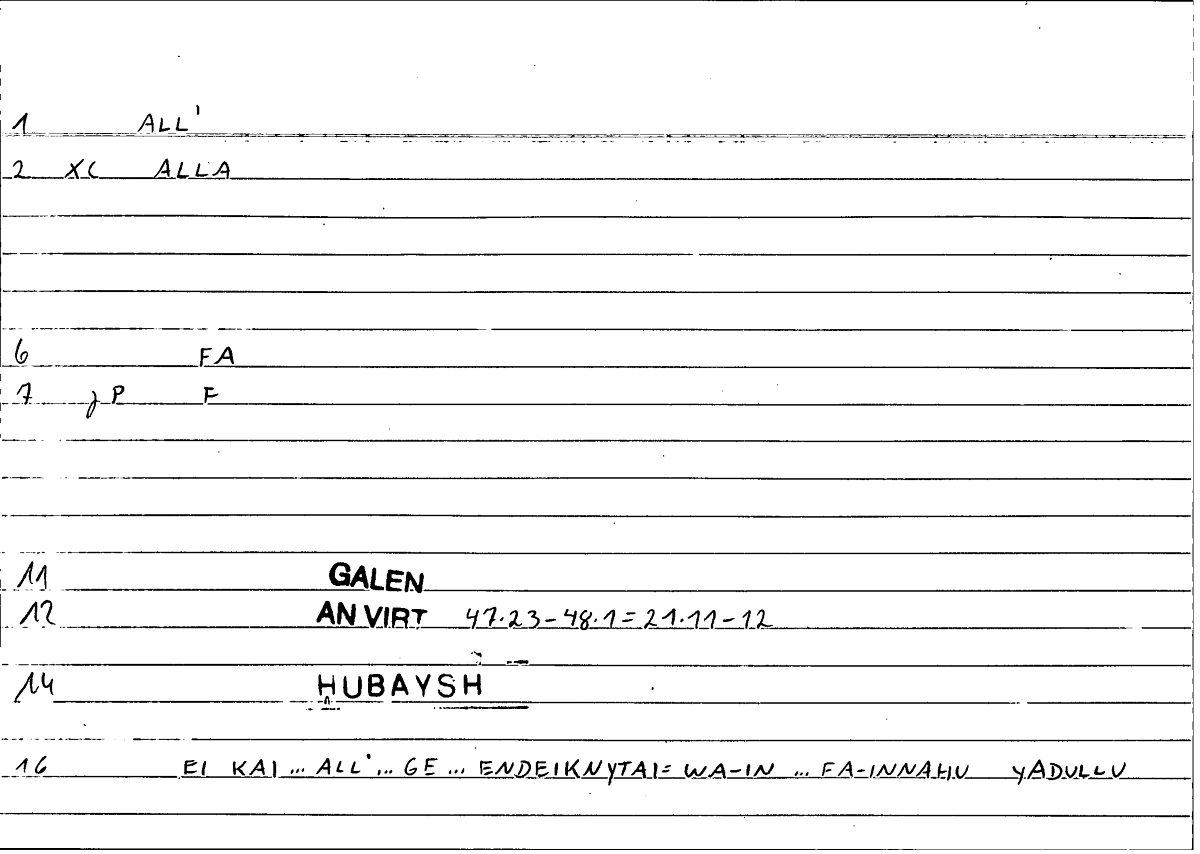 1 ALL'
2 XC ALLA
6 FA
7 P F
11 GALEN
12 AN VIRT 47.23-48.1=21.11-12
14 ḤUBAYSH
16 EI KAI ... ALL' ... GE ... ENDEIKNYTAI = WA-IN ... FA-INNAHU YADULLU